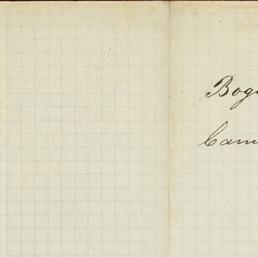 Bog
Cam